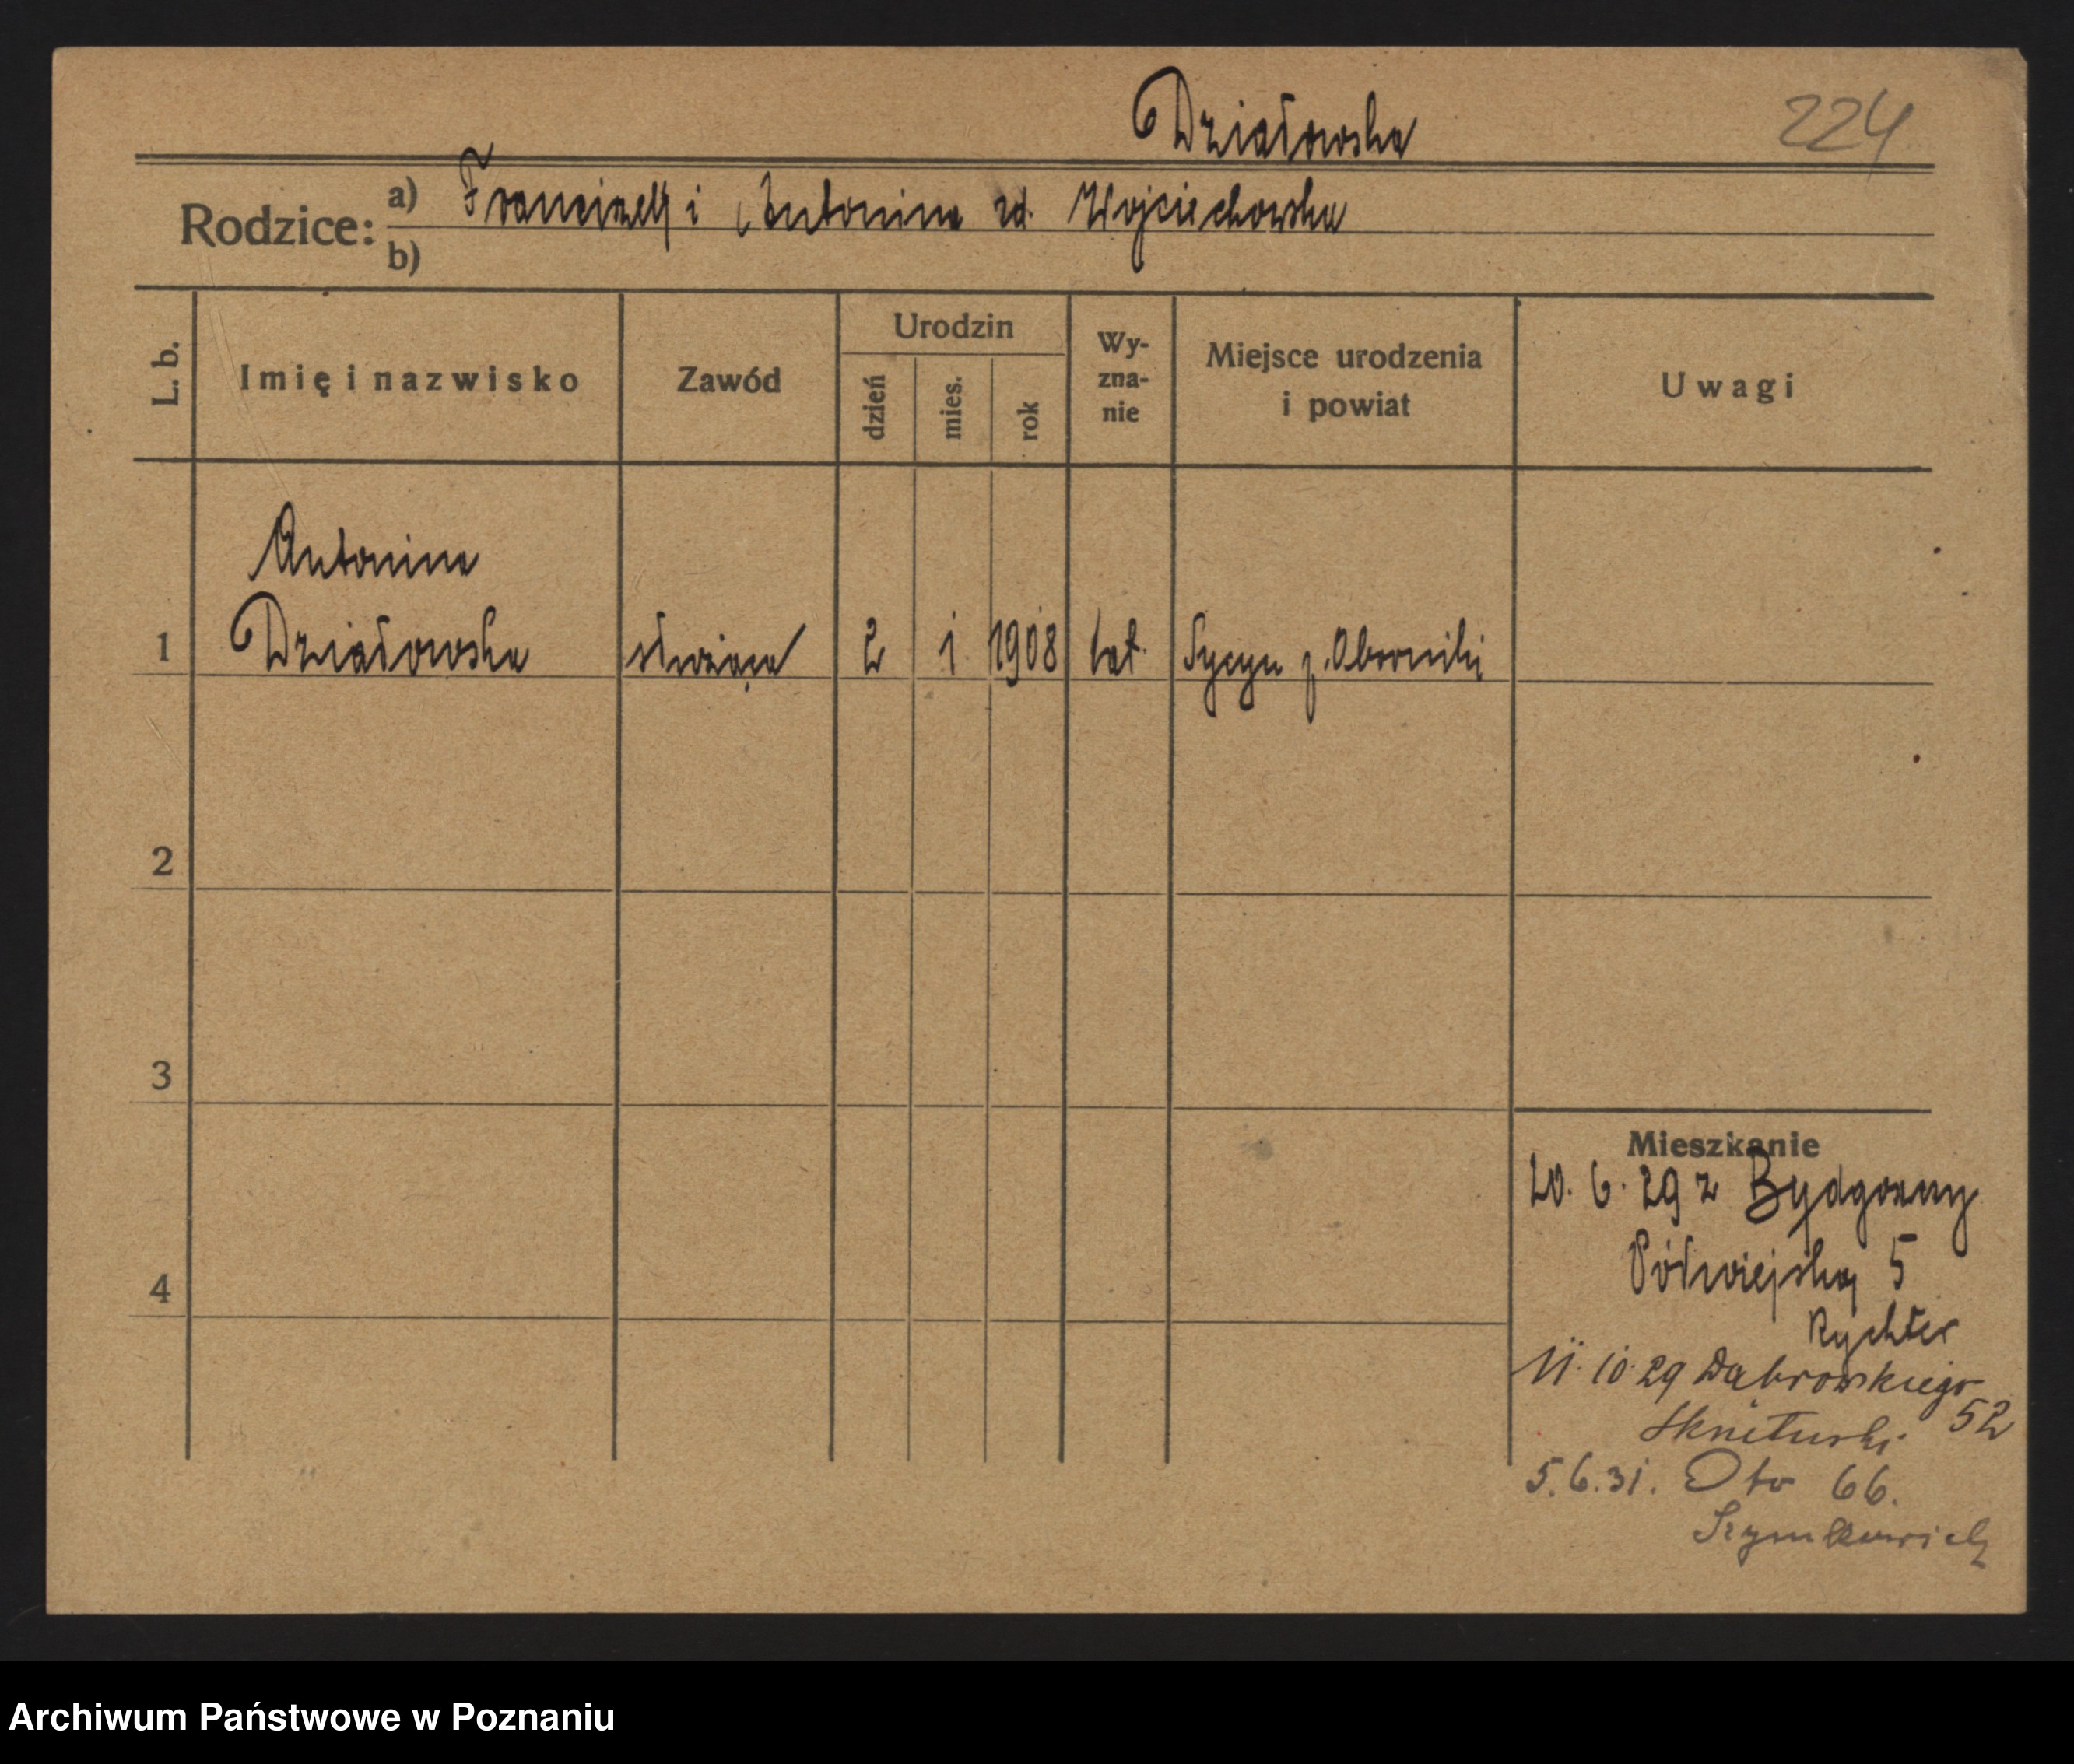 Działowska
224
Rodzice: a) Franciszek i Antonina zd. Wojciechowska
b)
L. b. Imię i nazwisko Zawód Urodzin dzień mies. rok Wy-zna-nie Miejsce urodzenia i powiat Uwagi
Antonina
1 Działowska służąca 2 1. 1908 kat. Sycyn p. Oborniki
2
3
Mieszkanie
20. 6. 29 z Bydgoszczy
4 Półwiejska 5
Rychter
11. 10. 29 Dąbrowskiego
52
5. 6. 31. Dto 66.
Archiwum Państwowe w Poznaniu